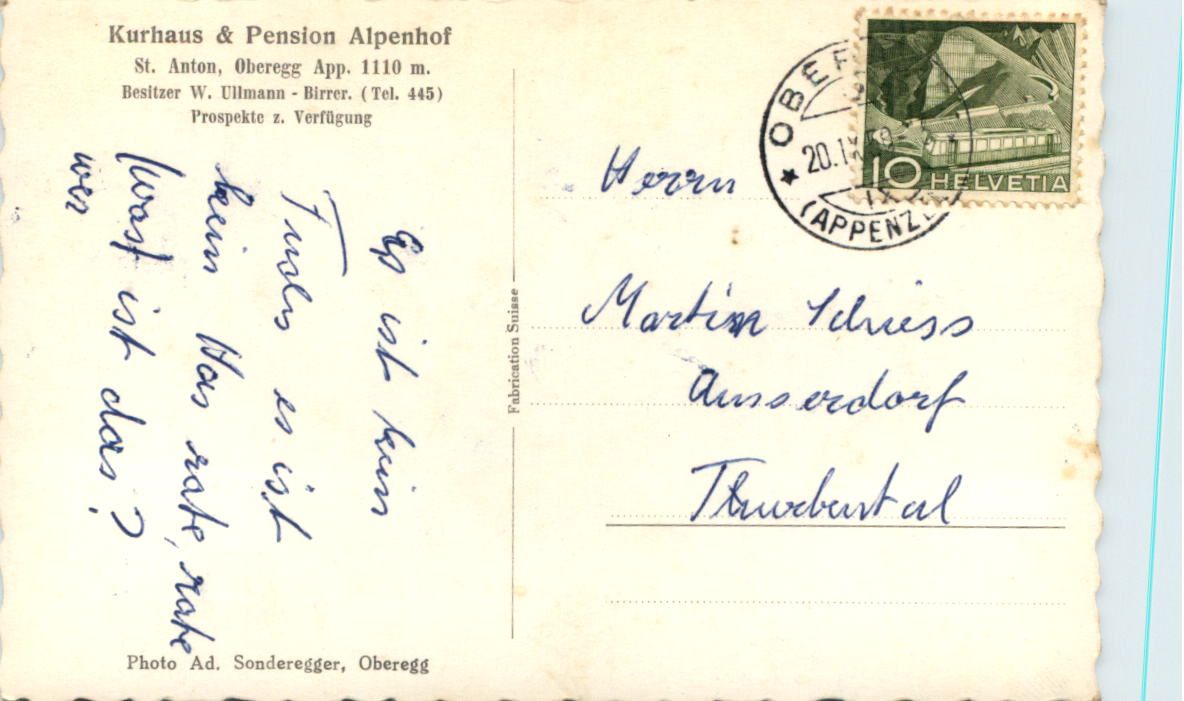 Kurhaus & Pension Alpenhof
St. Anton, Oberegg App. 1110 m.
Besitzer W. Ullmann - Birrer. (Tel. 445)
Prospekte z. Verfügung
Es ist kein
Fuchs es ist
kein Has rate, rate
(was) ist das?
wer
Photo Ad. Sonderegger, Oberegg
Fabrication Suisse
OBER
20.IX.
(APPENZ
10 HELVETIA
Herrn
Martin Schiess
Ausserdorf